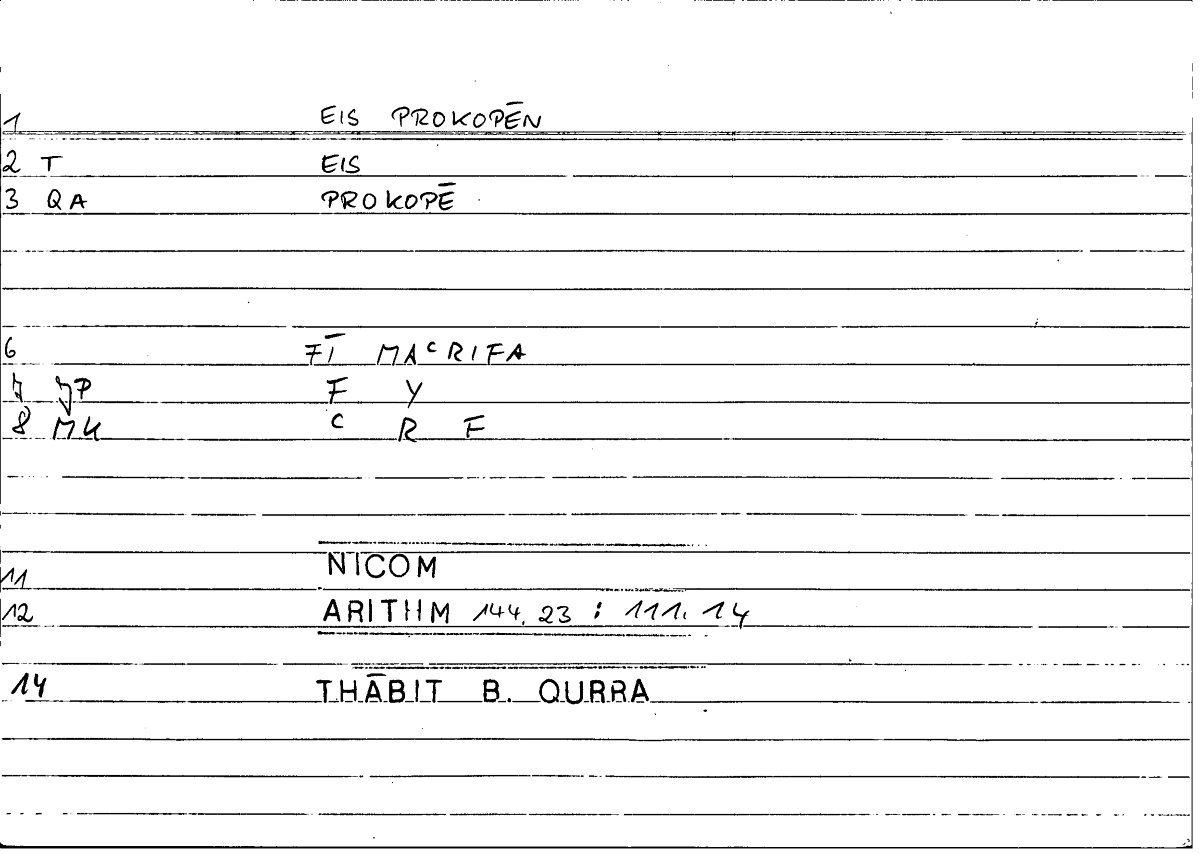 1 EIS PROKOPĒN
2 T EIS
3 QA PROKOPĒ
6 FĪ MAᶜRIFA
7 JP F Y
8 MK ᶜ R F
11 NICOM
12 ARITHM 144, 23 : 111, 14
14 THĀBIT B. QURRA